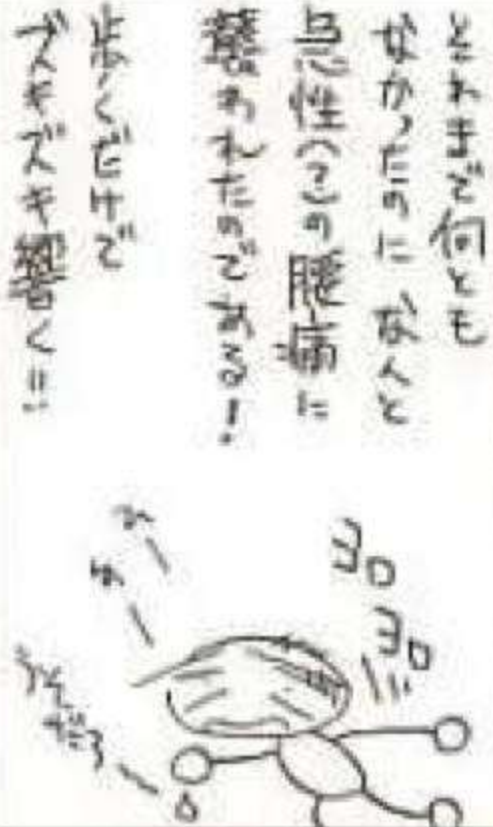 それまで何とも
なかったのに なんと
急性(?)の腰痛に
襲われたのである!
歩くだけで
ズキズキ響く!!
ヨロ
ヨロ
ひー
はー
うそだろー。